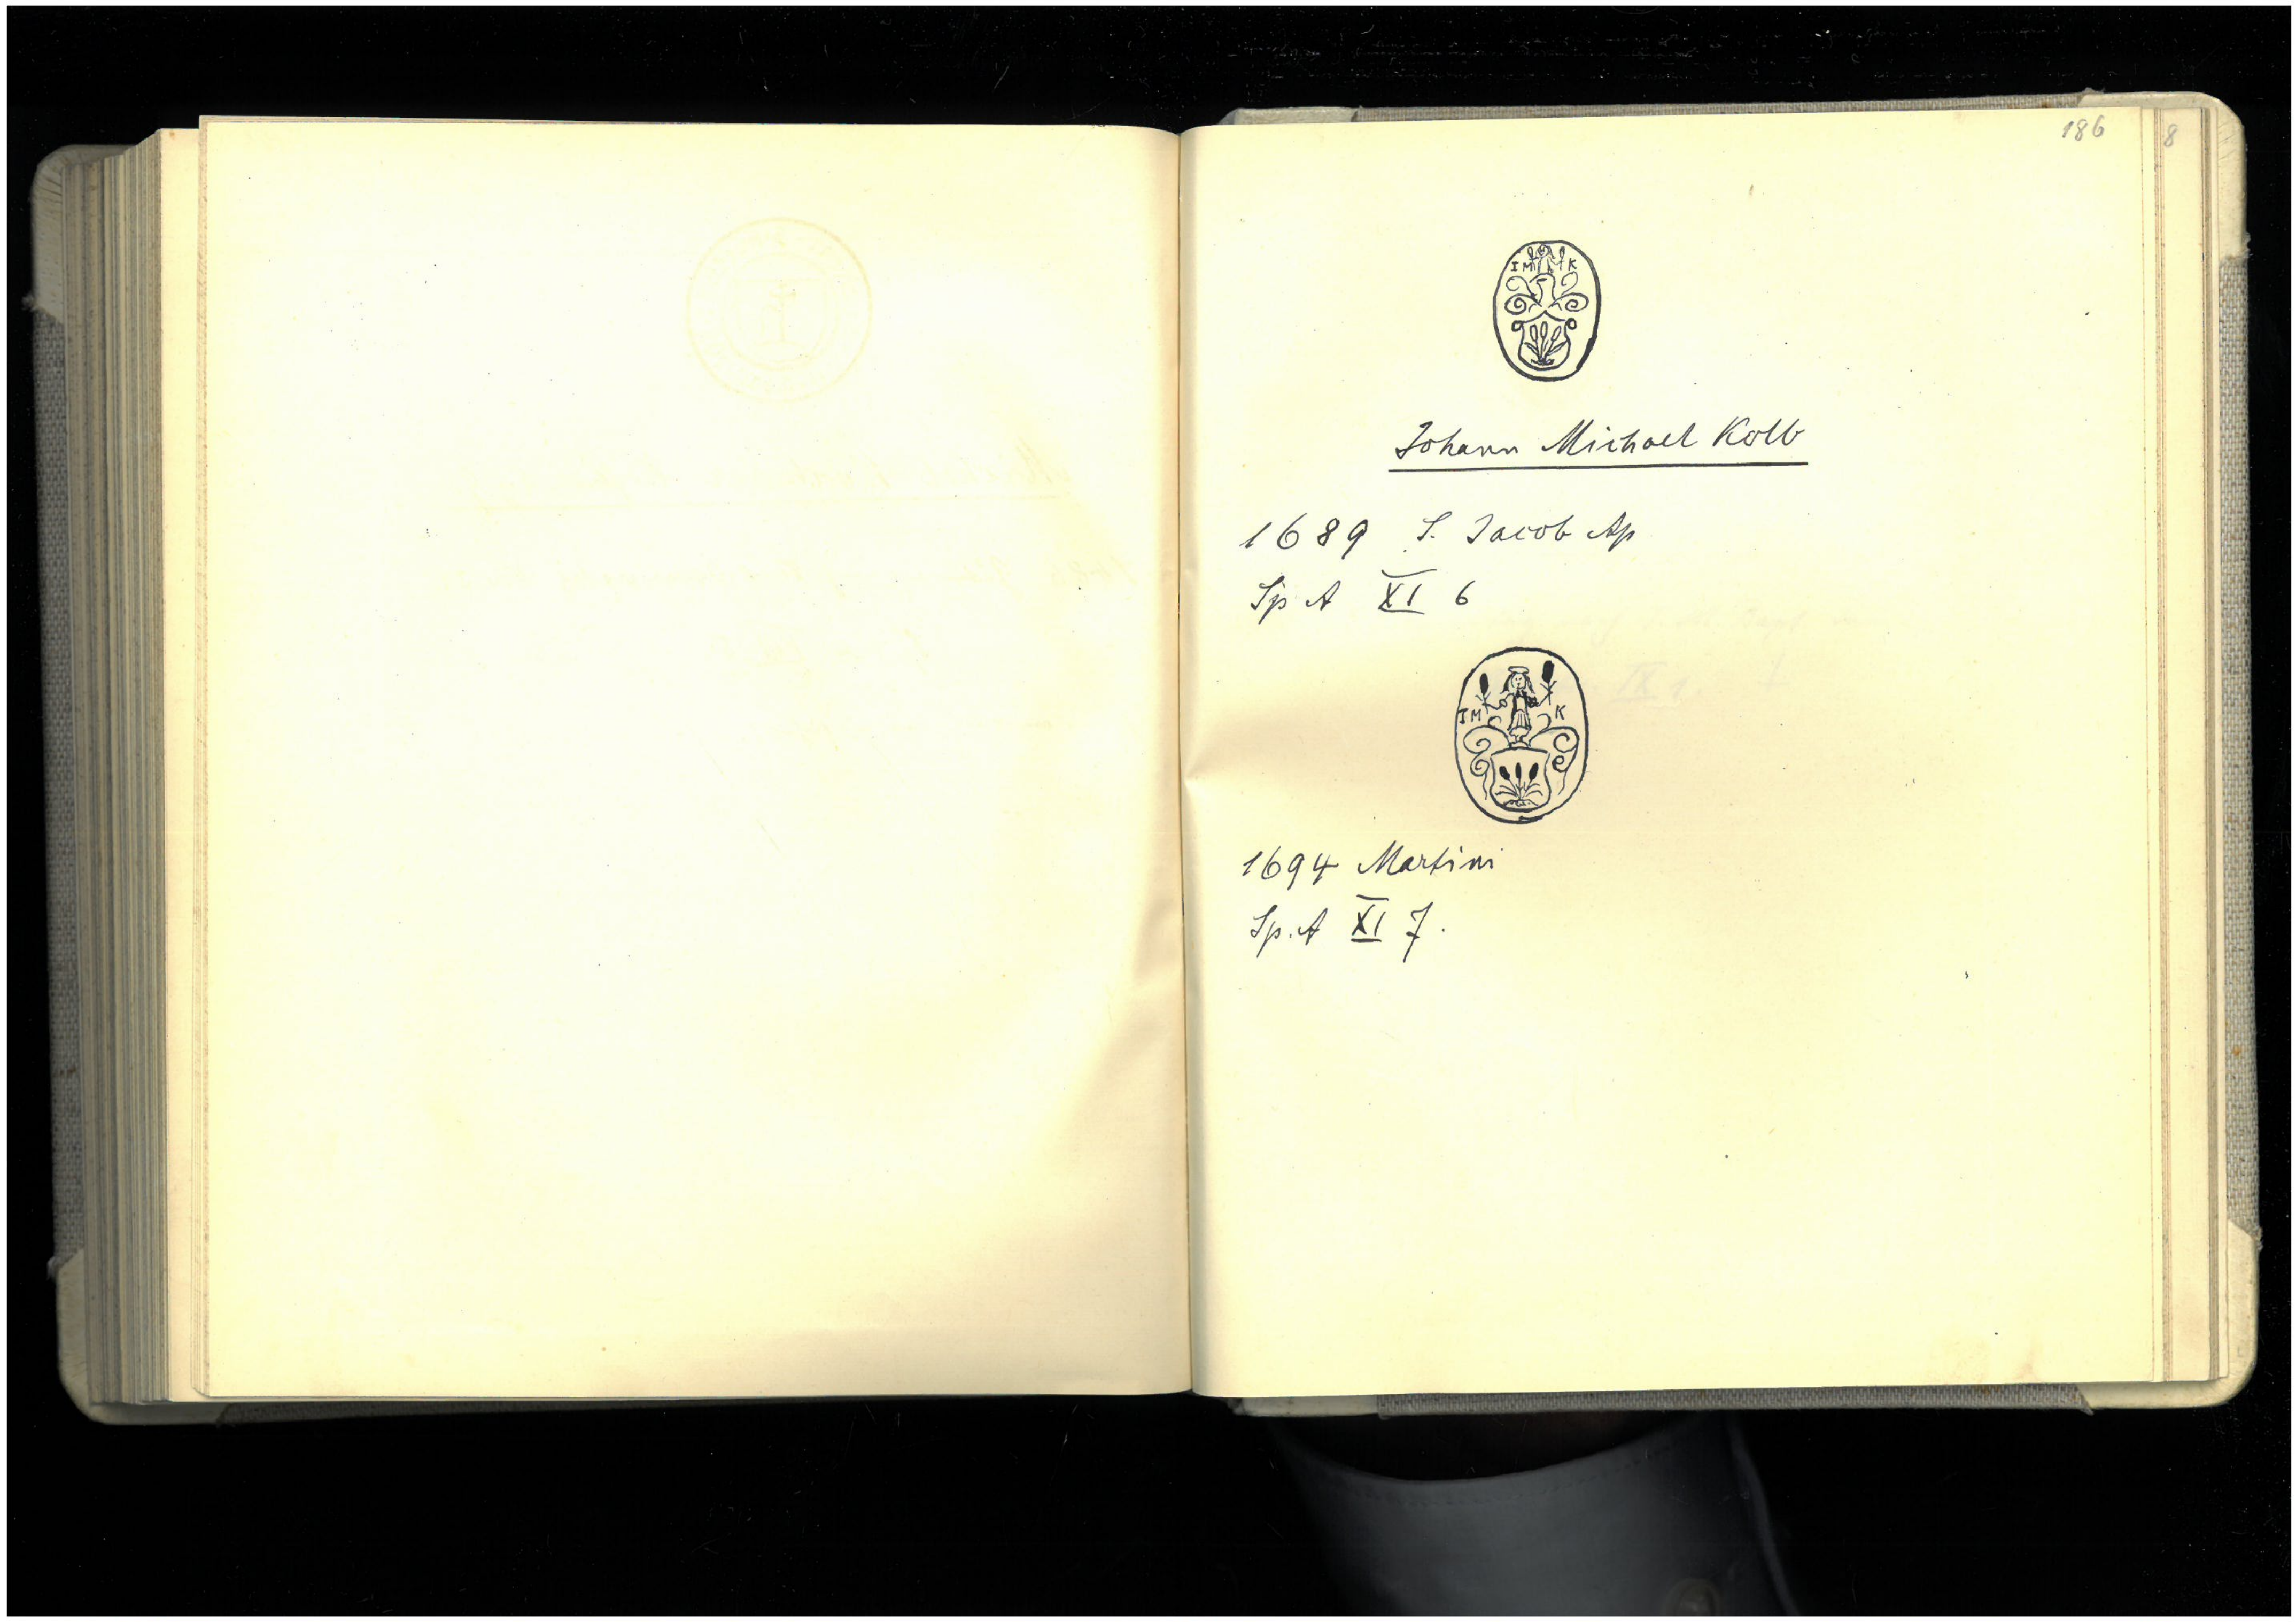 186
8
IM K
Johann Michael Kolb
1689 S. Jacob Ap
Sp A XI 6
IM K
1694 Martini
Sp. A XI 7.